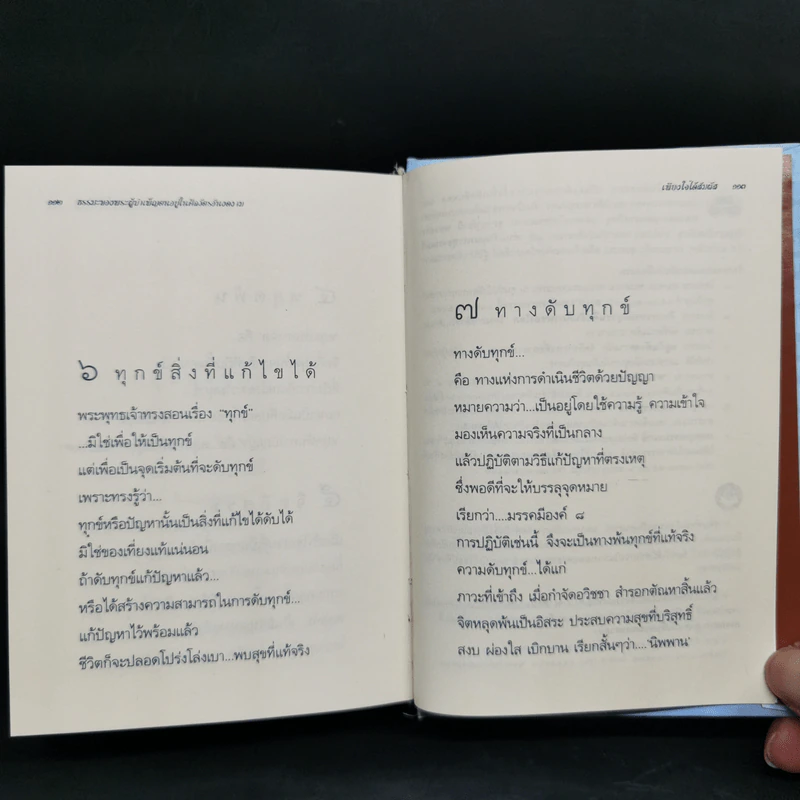 ๑๗๒ ธรรมะของพระผู้บำเพ็ญตนอยู่ใน
๖ ทุกข์สิ่งที่แก้ไขได้
พระพุทธเจ้าทรงสอนเรื่อง "ทุกข์"
...มิใช่เพื่อให้เป็นทุกข์
แต่เพื่อเป็นจุดเริ่มต้นที่จะดับทุกข์
เพราะทรงรู้ว่า...
ทุกข์หรือปัญหานั้นเป็นสิ่งที่แก้ไขได้ดับได้
มิใช่ของเที่ยงแท้แน่นอน
ถ้าดับทุกข์แก้ปัญหาแล้ว...
หรือได้สร้างความสามารถในการดับทุกข์...
แก้ปัญหาไว้พร้อมแล้ว
ชีวิตก็จะปลอดโปร่งโล่งเบา...พบสุขที่แท้จริง
เพียงใจได้สัมผัส ๑๑๓
๗ ทางดับทุกข์
ทางดับทุกข์...
คือ ทางแห่งการดำเนินชีวิตด้วยปัญญา
หมายความว่า...เป็นอยู่โดยใช้ความรู้ ความเข้าใจ
มองเห็นความจริงที่เป็นกลาง
แล้วปฏิบัติตามวิธีแก้ปัญหาที่ตรงเหตุ
ซึ่งพอดีที่จะให้บรรลุจุดหมาย
เรียกว่า....มรรคมีองค์ ๘
การปฏิบัติเช่นนี้ จึงจะเป็นทางพ้นทุกข์ที่แท้จริง
ความดับทุกข์...ได้แก่
ภาวะที่เข้าถึง เมื่อกำจัดอวิชชา สำรอกตัณหาสิ้นแล้ว
จิตหลุดพ้นเป็นอิสระ ประสบความสุขที่บริสุทธิ์
สงบ ผ่องใส เบิกบาน เรียกสั้นๆว่า....'นิพพาน'